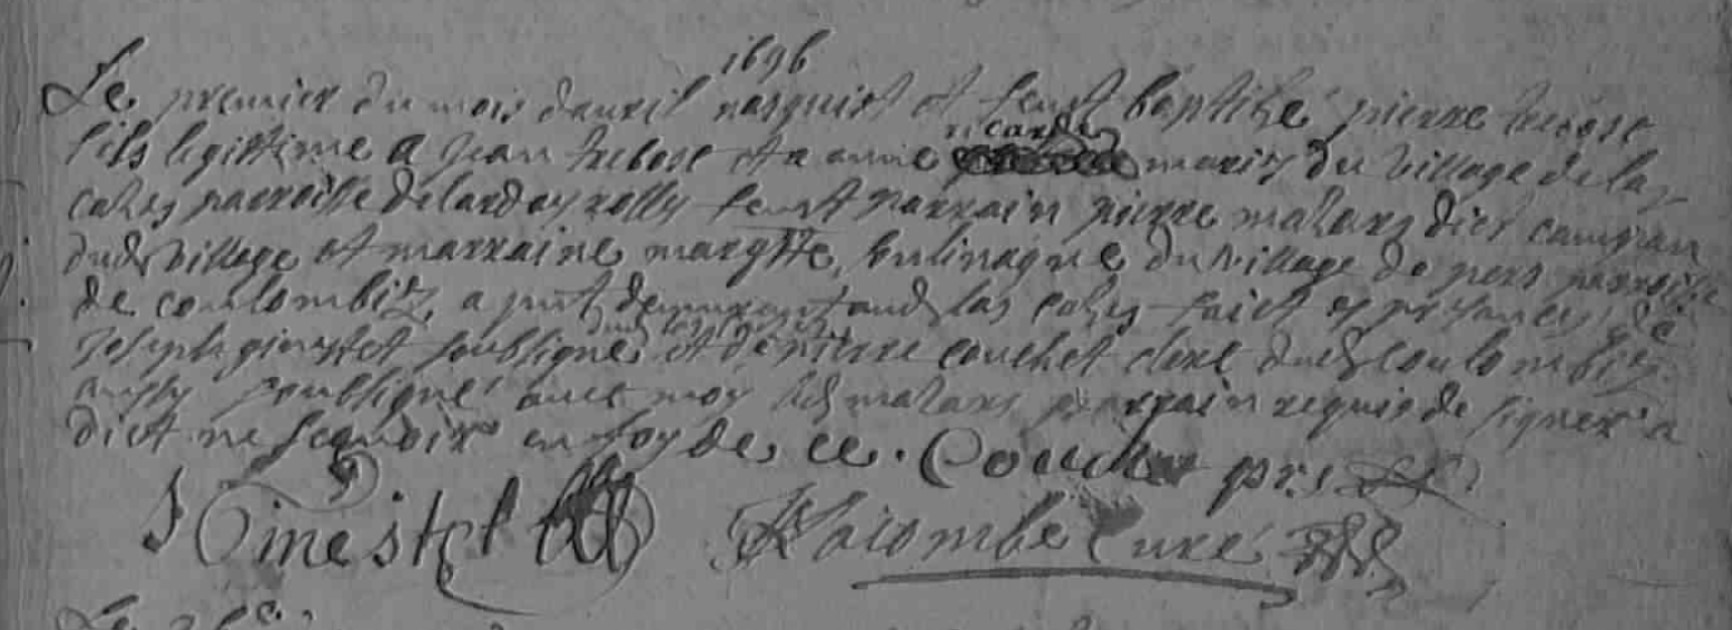 1696
Le premier du mois davril nasquist et feust baptizé pierre trebose
fils legittime a Jean trebose et a anne ricarde mariez du village de las
cazes parroisse de lardeyrolles feust parrain pierre malaxs dict
dud village et marraine margtte du village de pers parroisse
de coulombiz a pnt demeurant aud las cazes faict es presances de
Joseph ginestet soubsigne dud las cazes et de pierre couchet clerc dud coulombiz
aussy soubsigne avec moy led malaxs parrain requis de signer a
dict ne scavoir en foy de ce. Couchet pnt
J Ginestet Lacombe Curé
Le